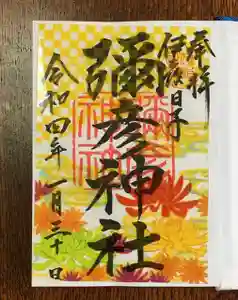 奉拝
伊夜日子
彌彦神社
令和四年 一月三十日